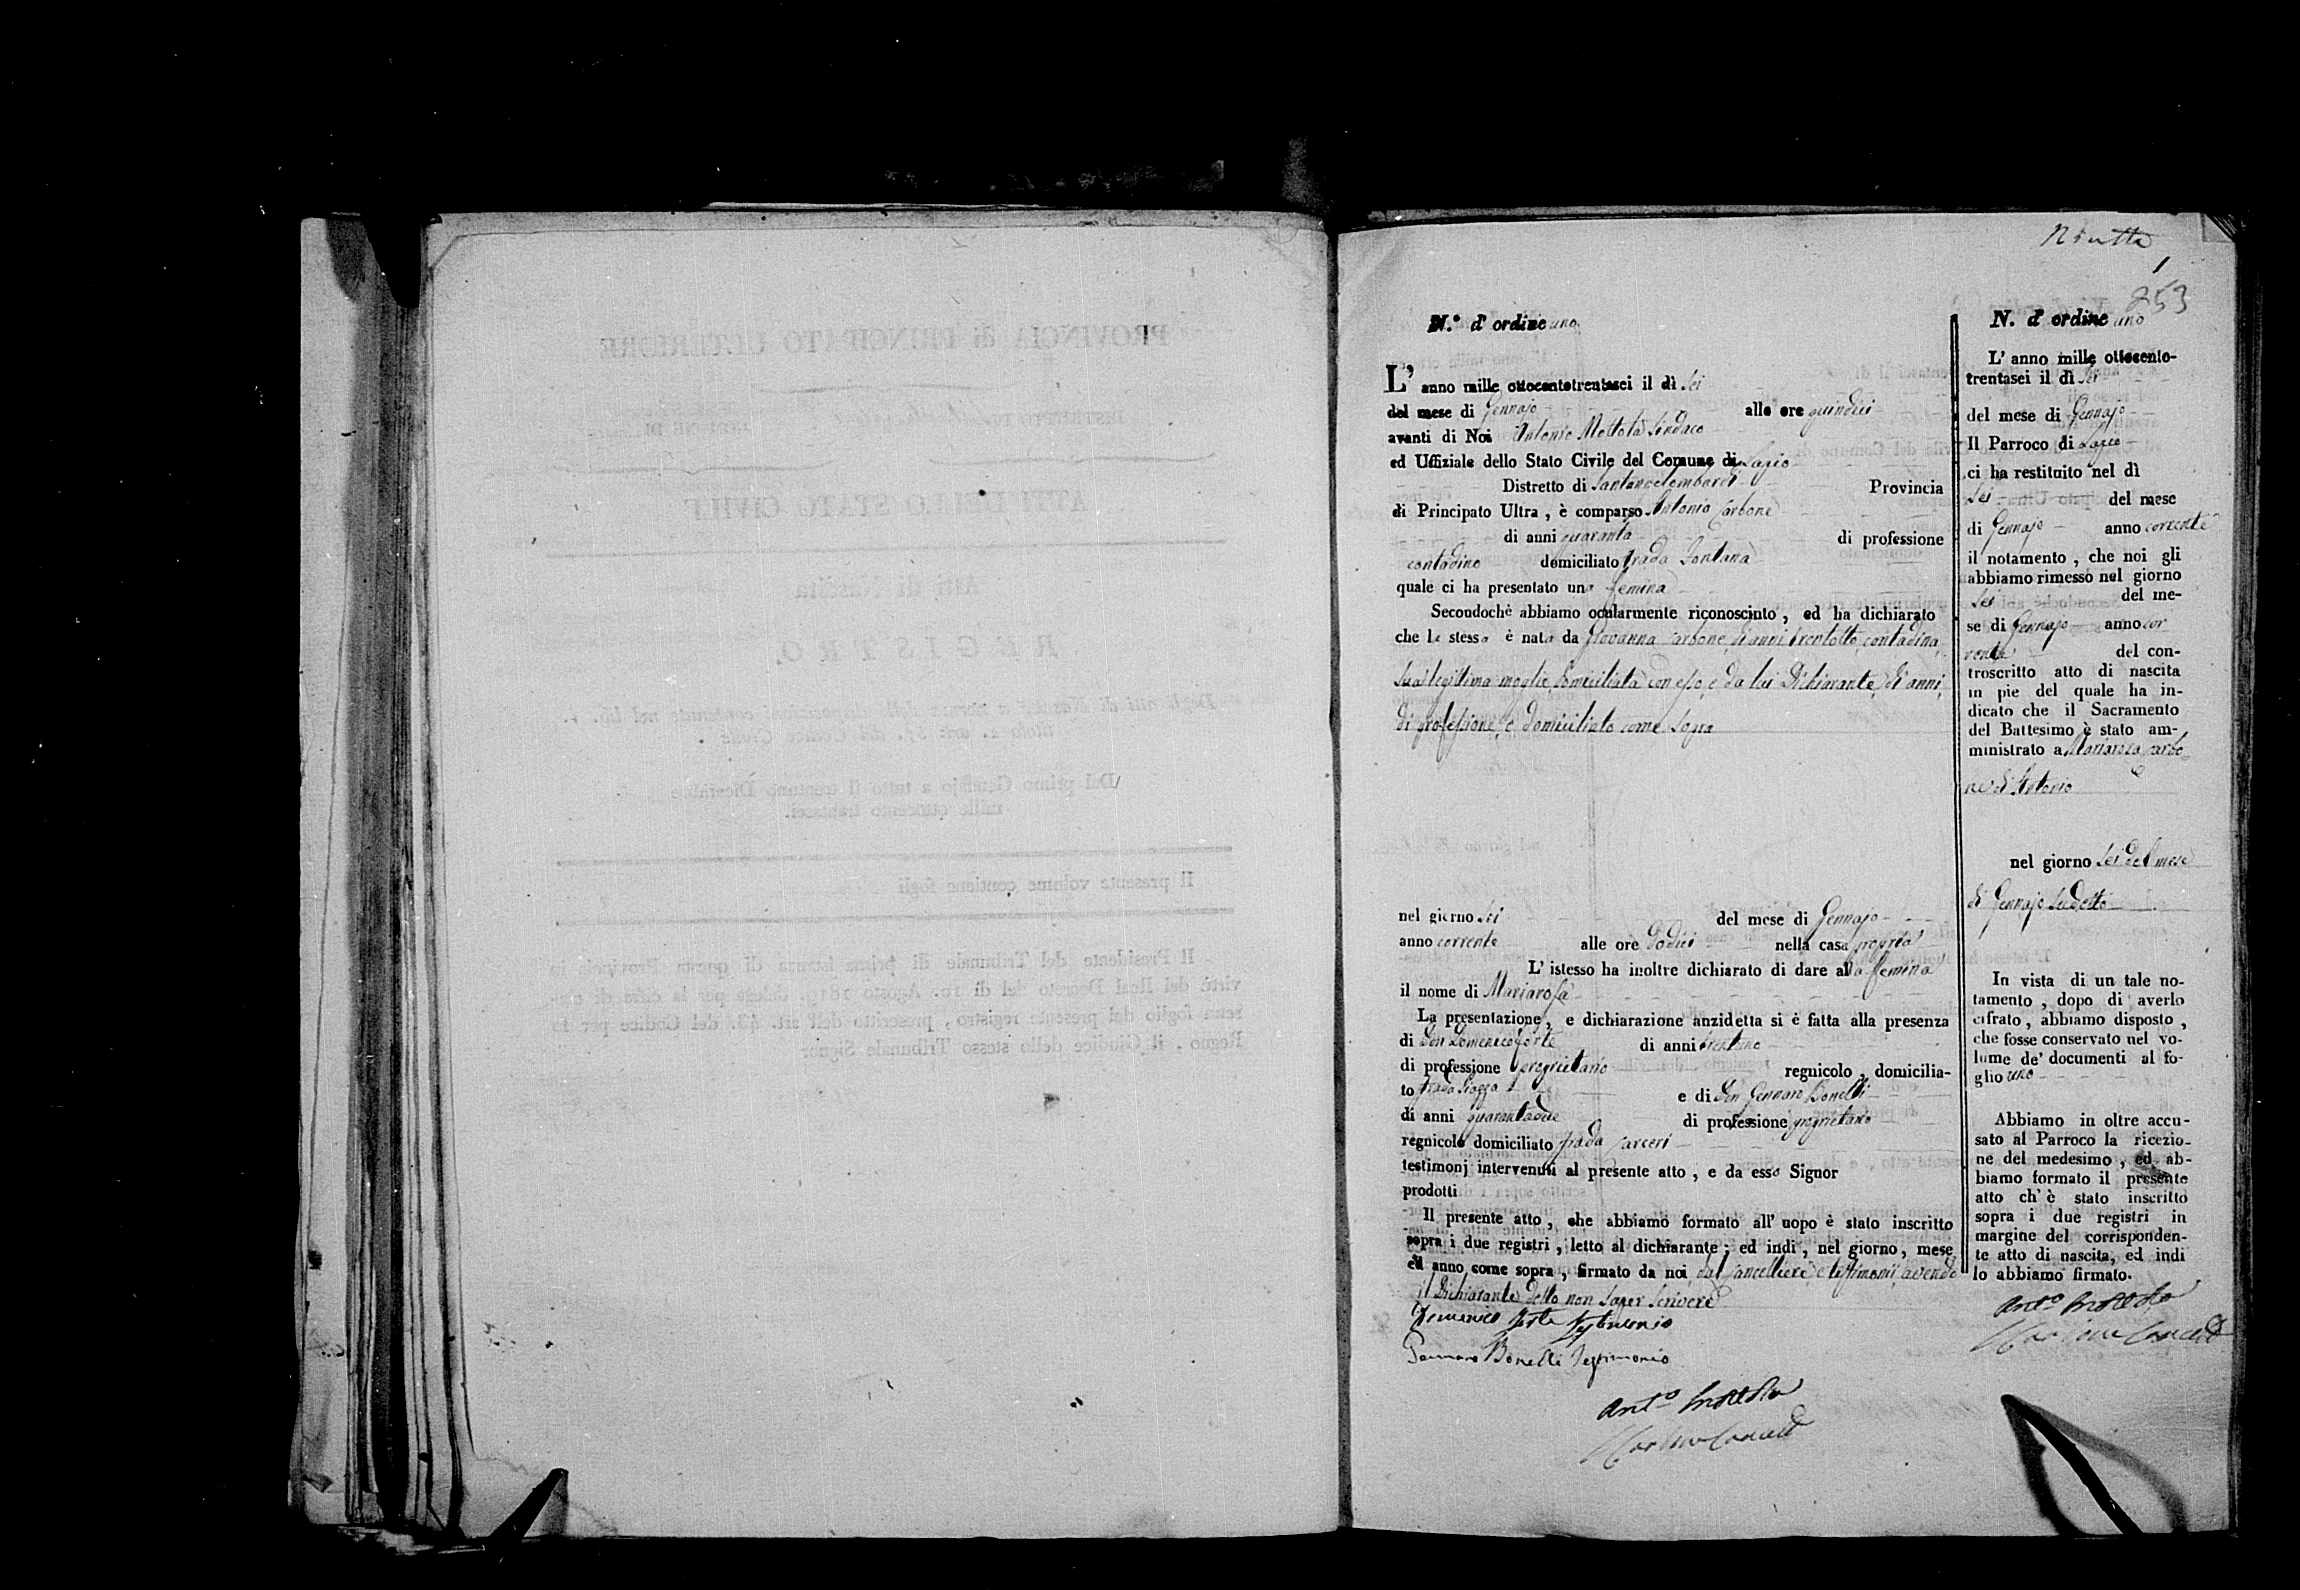 1
853
N.º d'ordine uno
L'anno mille ottocentotrentasei il dì Sei
del mese di Gennajo alle ore quindici
avanti di Noi Antonio Mottola Sindaco
ed Uffiziale dello Stato Civile del Comune di
Distretto di Santangelombardi Provincia
di Principato Ultra, è comparso Antonio Carbone
di anni quaranta di professione
contadino domiciliato Strada Fontana
quale ci ha presentato una femina
Secondochè abbiamo ocularmente riconosciuto, ed ha dichiarato
che la stessa è nata da Giovanna Carbone, di anni trentotto, contadina,
sua legittima moglie, domiciliata con esso, e da lui Dichiarante, di anni,
di professione, e domiciliato come sopra
nel giorno Sei del mese di Gennajo
anno corrente alle ore dodici nella casa propria
L'istesso ha inoltre dichiarato di dare alla femina
il nome di Mariarosa
La presentazione, e dichiarazione anzidetta si è fatta alla presenza
di Don Domenico Forte di anni trentuno
di professione proprietario regnicolo, domicilia-
to Strada Piazza e di Don Gennaro Bonelli
di anni quarantadue di professione proprietario
regnicolo domiciliato Strada Carceri
testimonj intervenuti al presente atto, e da esso Signor
prodotti
Il presente atto, che abbiamo formato all'uopo è stato inscritto
sopra i due registri, letto al dichiarante; ed indi, nel giorno, mese
ed anno come sopra, firmato da noi, dal Cancelliere e testimonii, avendo
il Dichiarante detto non saper scrivere
Domenico Forte Testimonio
Gennaro Bonelli Testimonio
Ant.º Mottola
N. d'ordine uno
L'anno mille ottocento-
trentasei il dì Sei
del mese di Gennajo
Il Parroco di
ci ha restituito nel dì
Sei del mese
di Gennajo anno corrente
il notamento, che noi gli
abbiamo rimesso nel giorno
Sei del me-
se di Gennajo anno cor
rente del con-
troscritto atto di nascita
in pie del quale ha in-
dicato che il Sacramento
del Battesimo è stato am-
ministrato a Mariarosa Carbo
ne di Antonio
nel giorno Sei del mese
di Gennajo sudetto
In vista di un tale no-
tamento, dopo di averlo
cifrato, abbiamo disposto,
che fosse conservato nel vo-
lume de' documenti al fo-
glio uno
Abbiamo in oltre accu-
sato al Parroco la ricezio-
ne del medesimo, ed ab-
biamo formato il presente
atto ch'è stato inscritto
sopra i due registri in
margine del corrisponden-
te atto di nascita, ed indi
lo abbiamo firmato.
Ant.º Mottola